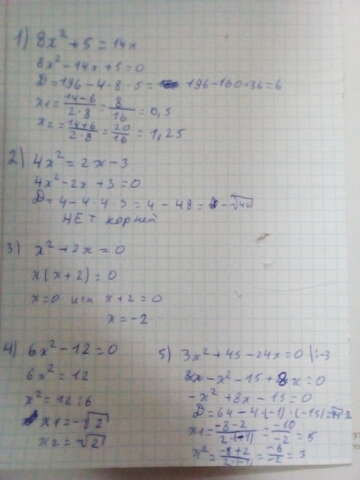 1) 8x² + 5 = 14x
8x² - 14x + 5 = 0
D = 196 - 4 · 8 · 5 = 196 - 160 = 36 = 6
x1 = (14-6)/(2·8) = 8/16 = 0,5
x2 = (14+6)/(2·8) = 20/16 = 1,25
2) 4x² = 2x - 3
4x² - 2x + 3 = 0
D = 4 - 4 · 4 · 3 = 4 - 48 =
НЕТ корней
3) x² + 2x = 0
x(x + 2) = 0
x = 0 или x + 2 = 0
x = -2
4) 6x² - 12 = 0
6x² = 12
x² = 12 : 6
x1 = -√2
x2 = √2
5) 3x² + 45 - 24x = 0 |:-3
-x² - 15 + 8x = 0
-x² + 8x - 15 = 0
D = 64 - 4 · (-1) · (-15) =
x1 = (-8-2)/(2·(-1)) = -10/-2 = 5
x² = (-8+2)/(2·(-1)) = -6/-2 = 3